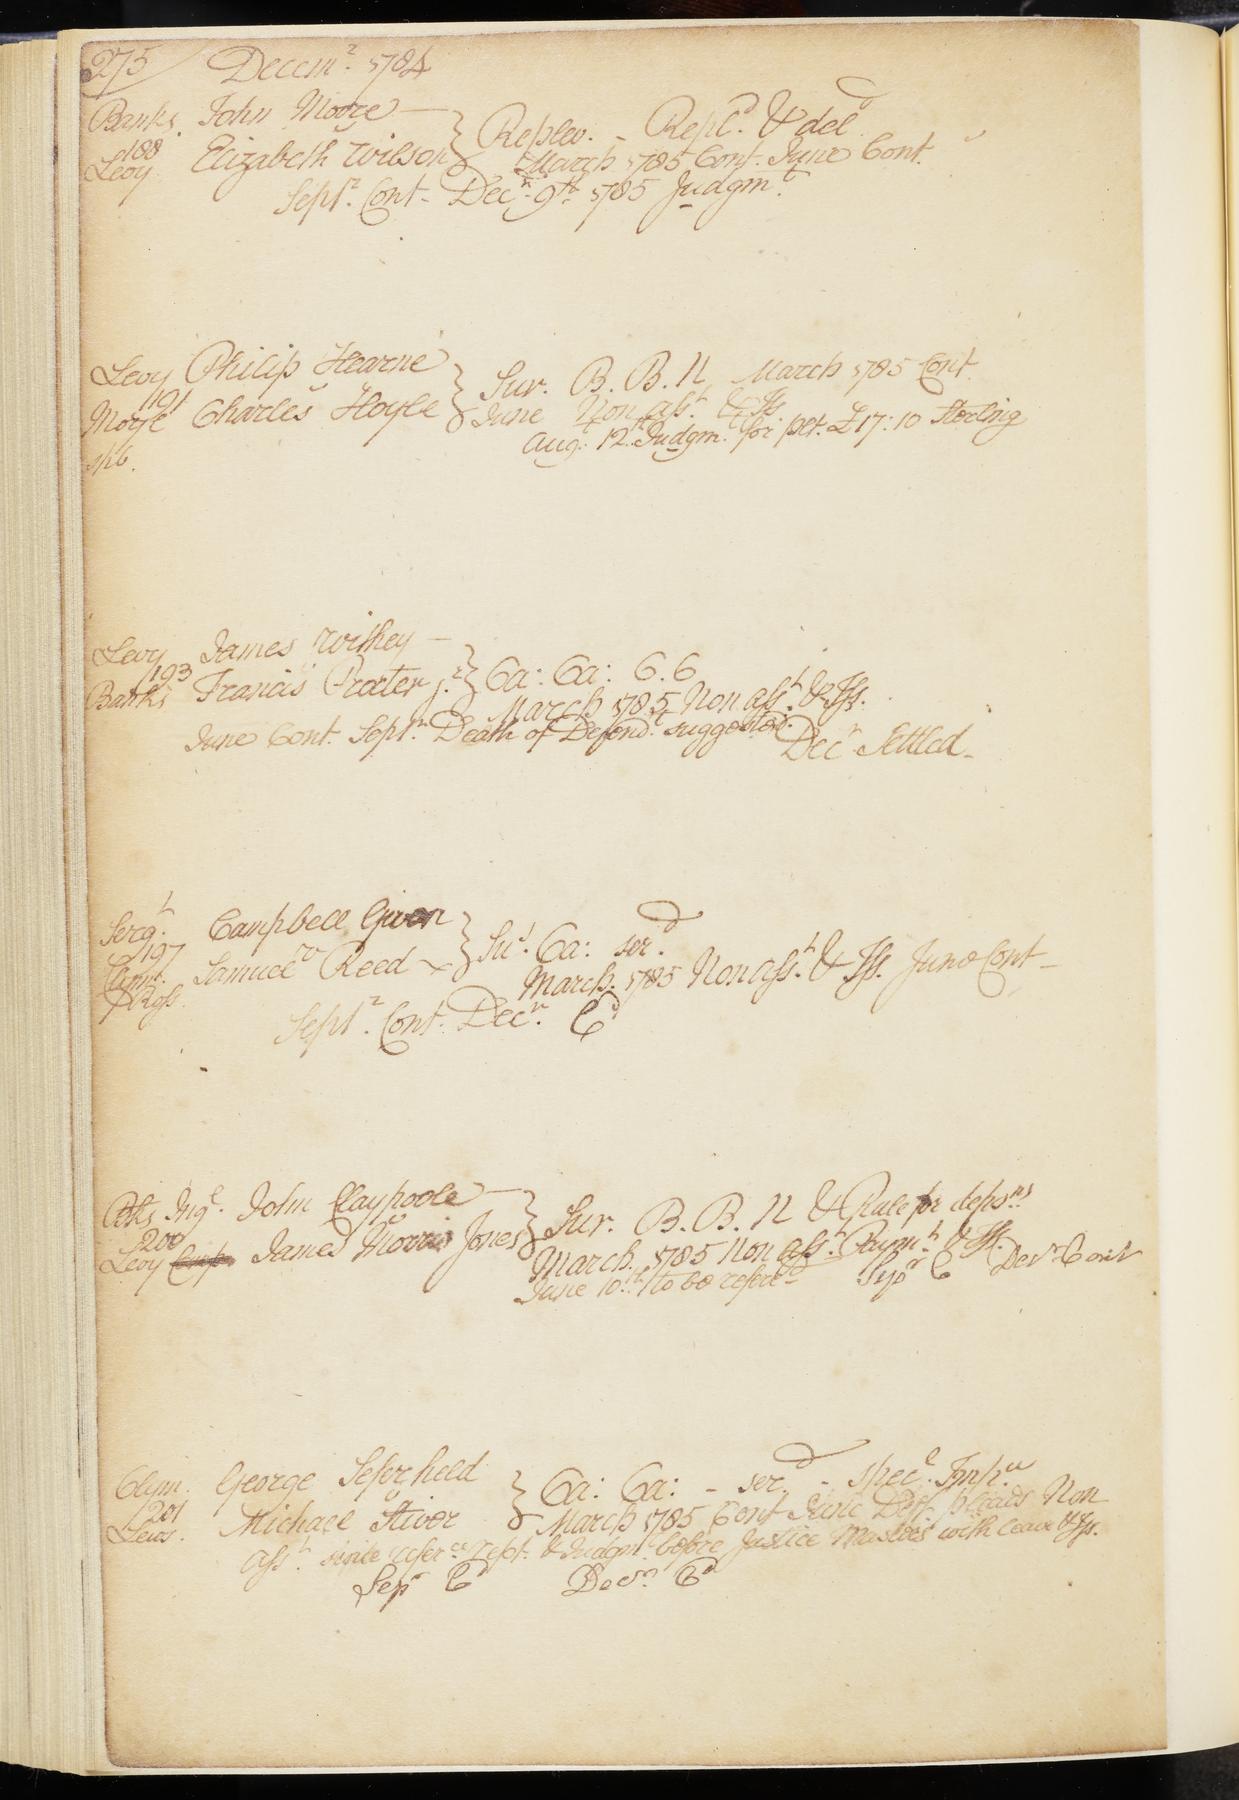 275 Decem.r 1784
Banks. John Moore
188
Levy Elizabeth Wilson } Replev. - Repl.d & del.d
March 1785 Cont. June Cont.
Sept.r Cont - Dec.r 9th 1785 Judgm.t
Levy Philip Hearne
191
Moyle Charles Hoyle } Sur. B. B. 11 March 1785 Cont.
June Non ass.t & Iss.
Aug.t 12th Judgm.t for plt. £17:10 Sterling
Levy James Withey
193
Banks Francis Procter j.r } Ca: Ca: C.C
March 1785 Non ass.t & Iss.
June Cont. Sept.r Death of Defend.t suggested.
Dec.r Settled
Serg.t Campbell
197
Samuel Reed } Su.r Ca: ser.d
Clym.r
March. 1785 Non ass.t & Iss. June Cont
Ross.
Sept.r Cont. Dec.r C.d
Ing.l John Claypoole
200
Levy James Morris Jones } Sur. B. B. 11 & Rule for depo.ns
March. 1785 Non ass.t Paym.t & Iss.
June 10.th to be refer.d Sep.r C Dec.r Cont
Clym. George Seferheld
201
Lewis. Michael Stiver } Ca: Ca: - ser.d - spec.l Imp.ce
March 1785 Cont June Def.t pleads Non
ass.t refer.ce rept. & Judgm.t before Justice with leave & Iss.
Sep.r C.d Dec.r C.d